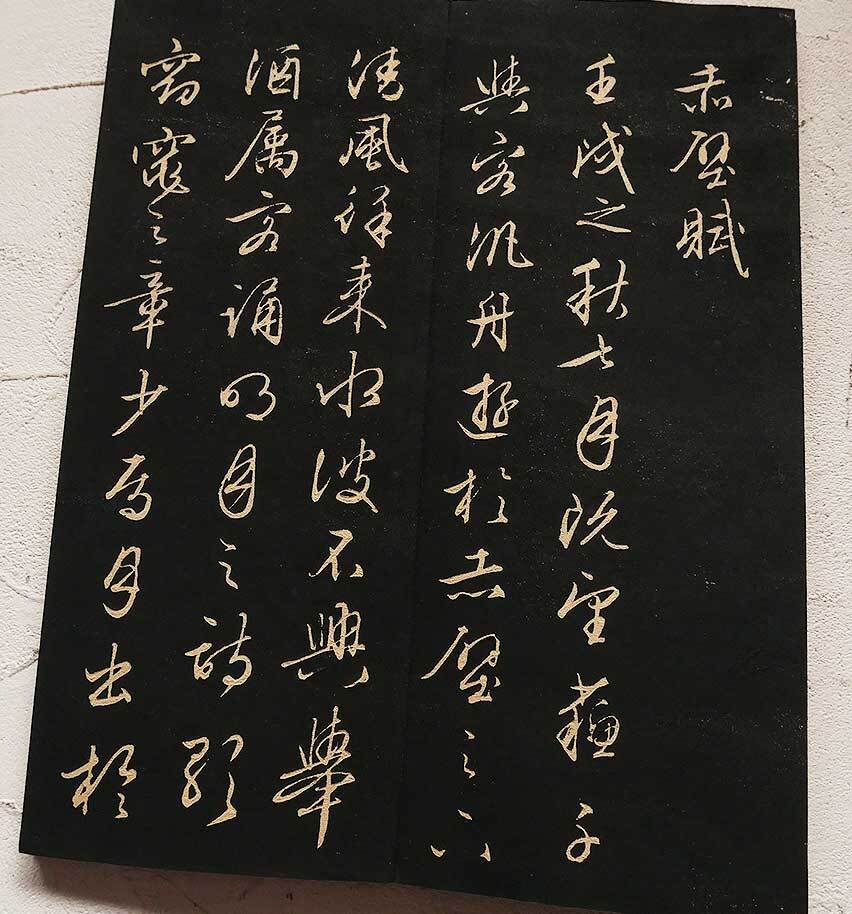 赤壁賦
壬戌之秋七月既望蘇子
與客汎舟遊於赤壁之下
清風徐来水波不興舉
酒属客誦明月之詩歌
窈窕之章少焉月出於